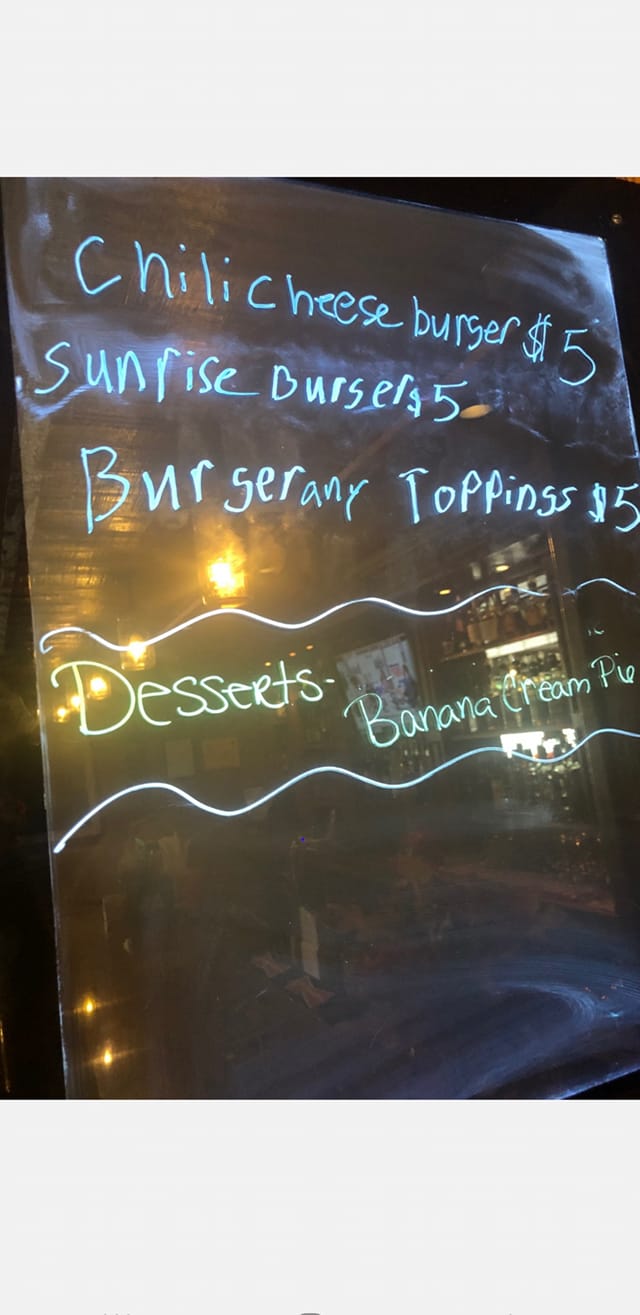 Chili cheese burger $5
Sunrise Burger $5
Burger any Toppings $5
Desserts- Banana Cream Pie